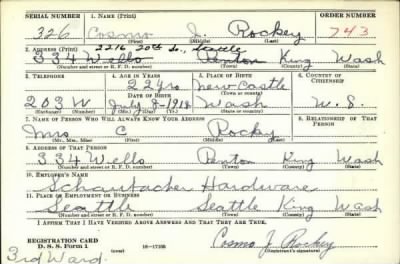 SERIAL NUMBER 1. NAME (Print) ORDER NUMBER
326 Cosmo J. Rockey 743
(First) (Middle) (Last)
2216 20th So., Seattle
2. ADDRESS (Print)
334 Wells Renton King Wash
(Number and street or R. F. D. number) (Town) (County) (State)
3. TELEPHONE 4. AGE IN YEARS 5. PLACE OF BIRTH 6. COUNTRY OF CITIZENSHIP
22 yrs New Castle
DATE OF BIRTH (Town or county)
203 W July 8-1918 Wash U.S.
(Exchange) (Number) (Mo.) (Day) (Yr.) (State or country)
7. NAME OF PERSON WHO WILL ALWAYS KNOW YOUR ADDRESS 8. RELATIONSHIP OF THAT PERSON
Mrs C Rockey
(Mr., Mrs., Miss) (First) (Middle) (Last)
9. ADDRESS OF THAT PERSON
334 Wells Renton King Wash
(Number and street or R. F. D. number) (Town) (County) (State)
10. EMPLOYER'S NAME
Hardware
11. PLACE OF EMPLOYMENT OR BUSINESS
Seattle Seattle King Wash
(Number and street or R. F. D. number) (Town) (County) (State)
I AFFIRM THAT I HAVE VERIFIED ABOVE ANSWERS AND THAT THEY ARE TRUE.
REGISTRATION CARD
D. S. S. Form 1 (over) 16-17105 Cosmo J. Rockey
(Registrant's signature)
3rd Ward.